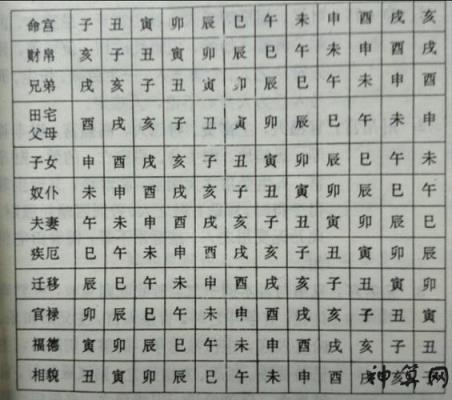 命宫 子 丑 寅 卯 辰 巳 午 未 申 酉 戌 亥
财帛 亥 子 丑 寅 卯 辰 巳 午 未 申 酉 戌
兄弟 戌 亥 子 丑 寅 卯 辰 巳 午 未 申 酉
田宅
父母 酉 戌 亥 子 丑 寅 卯 辰 巳 午 未 申
子女 申 酉 戌 亥 子 丑 寅 卯 辰 巳 午 未
奴仆 未 申 酉 戌 亥 子 丑 寅 卯 辰 巳 午
夫妻 午 未 申 酉 戌 亥 子 丑 寅 卯 辰 巳
疾厄 巳 午 未 申 酉 戌 亥 子 丑 寅 卯 辰
迁移 辰 巳 午 未 申 酉 戌 亥 子 丑 寅 卯
官禄 卯 辰 巳 午 未 申 酉 戌 亥 子 丑 寅
福德 寅 卯 辰 巳 午 未 申 酉 戌 亥 子 丑
相貌 丑 寅 卯 辰 巳 午 未 申 酉 戌 亥 子
神算网